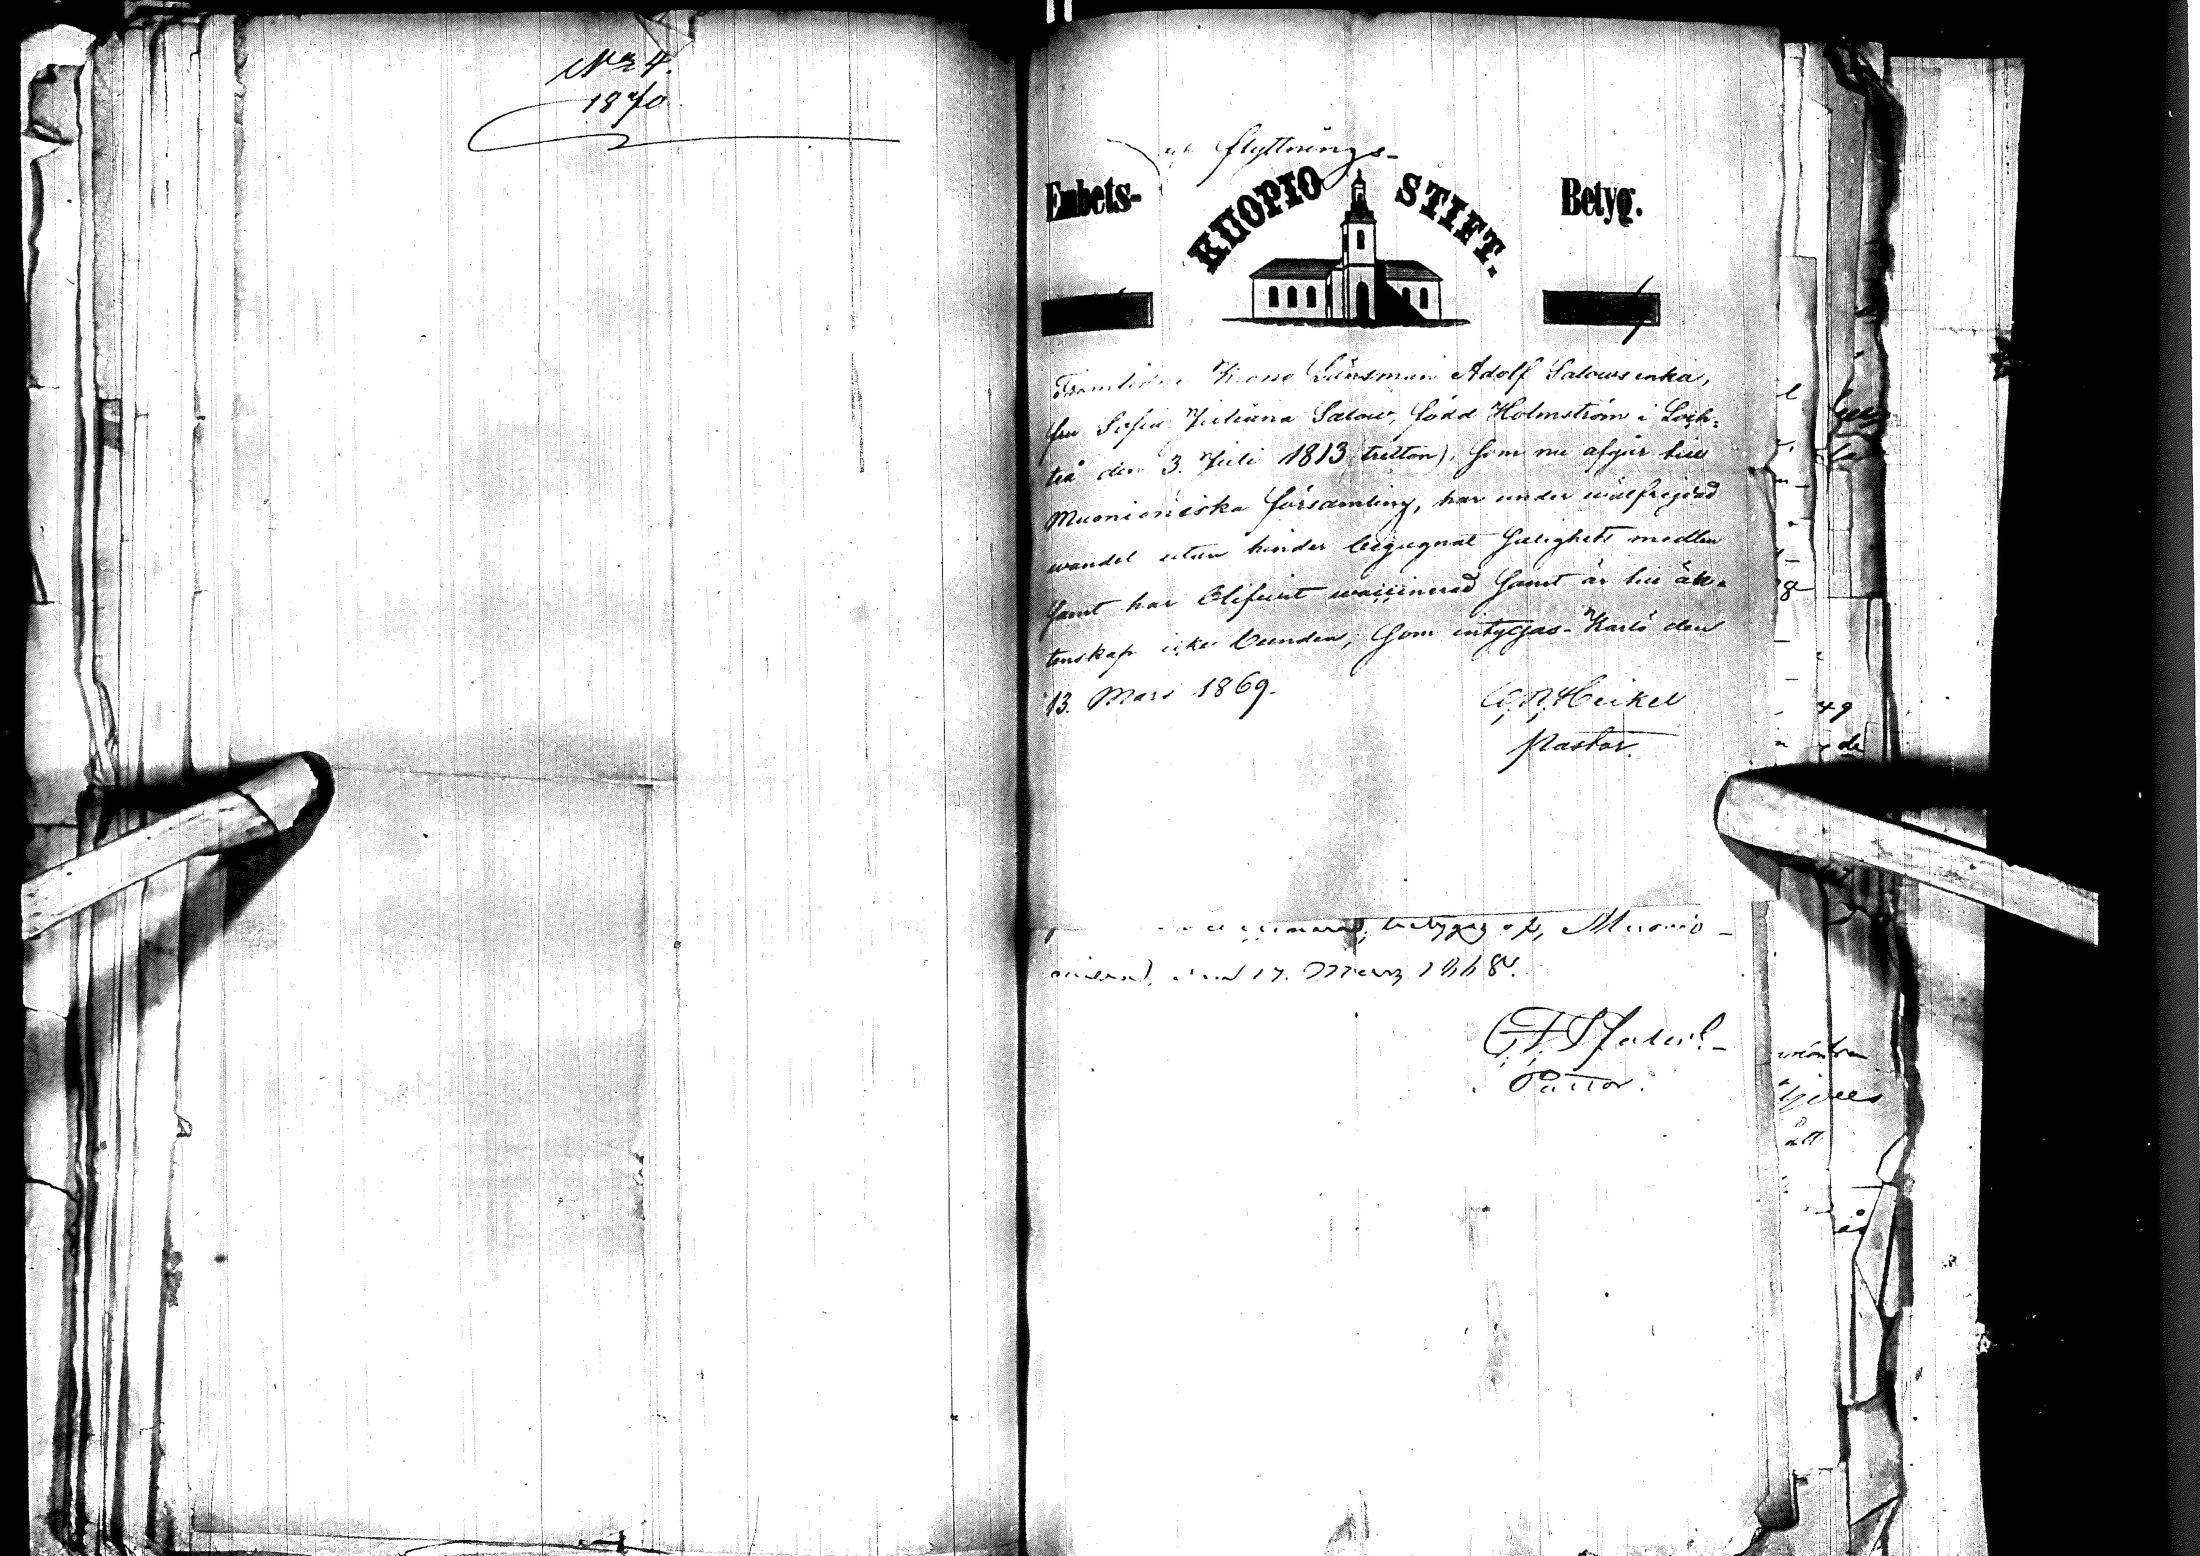 No 4.
1870
och flyttnings-
Embets-
KUOPIO STIFT.
Betyg.
Framlidne Krono Länsman Adolf Salows enka,
fru Sofia Juliana Salow, född Holmström i Loch-
teå den 3. Juli 1813 tretton), som nu afgår till
Muonioniska församling, har under wälfrejdad
wandel utan hinder begagnat salighets medlen
samt har blifwit waccinerad samt är till äk-
tenskap icke bunden; som intygas. Karlö den
13. Mars 1869.
Heikel
Pastor.
betygas af, Muonio-
den 17. Mars 1868.
Pastor.